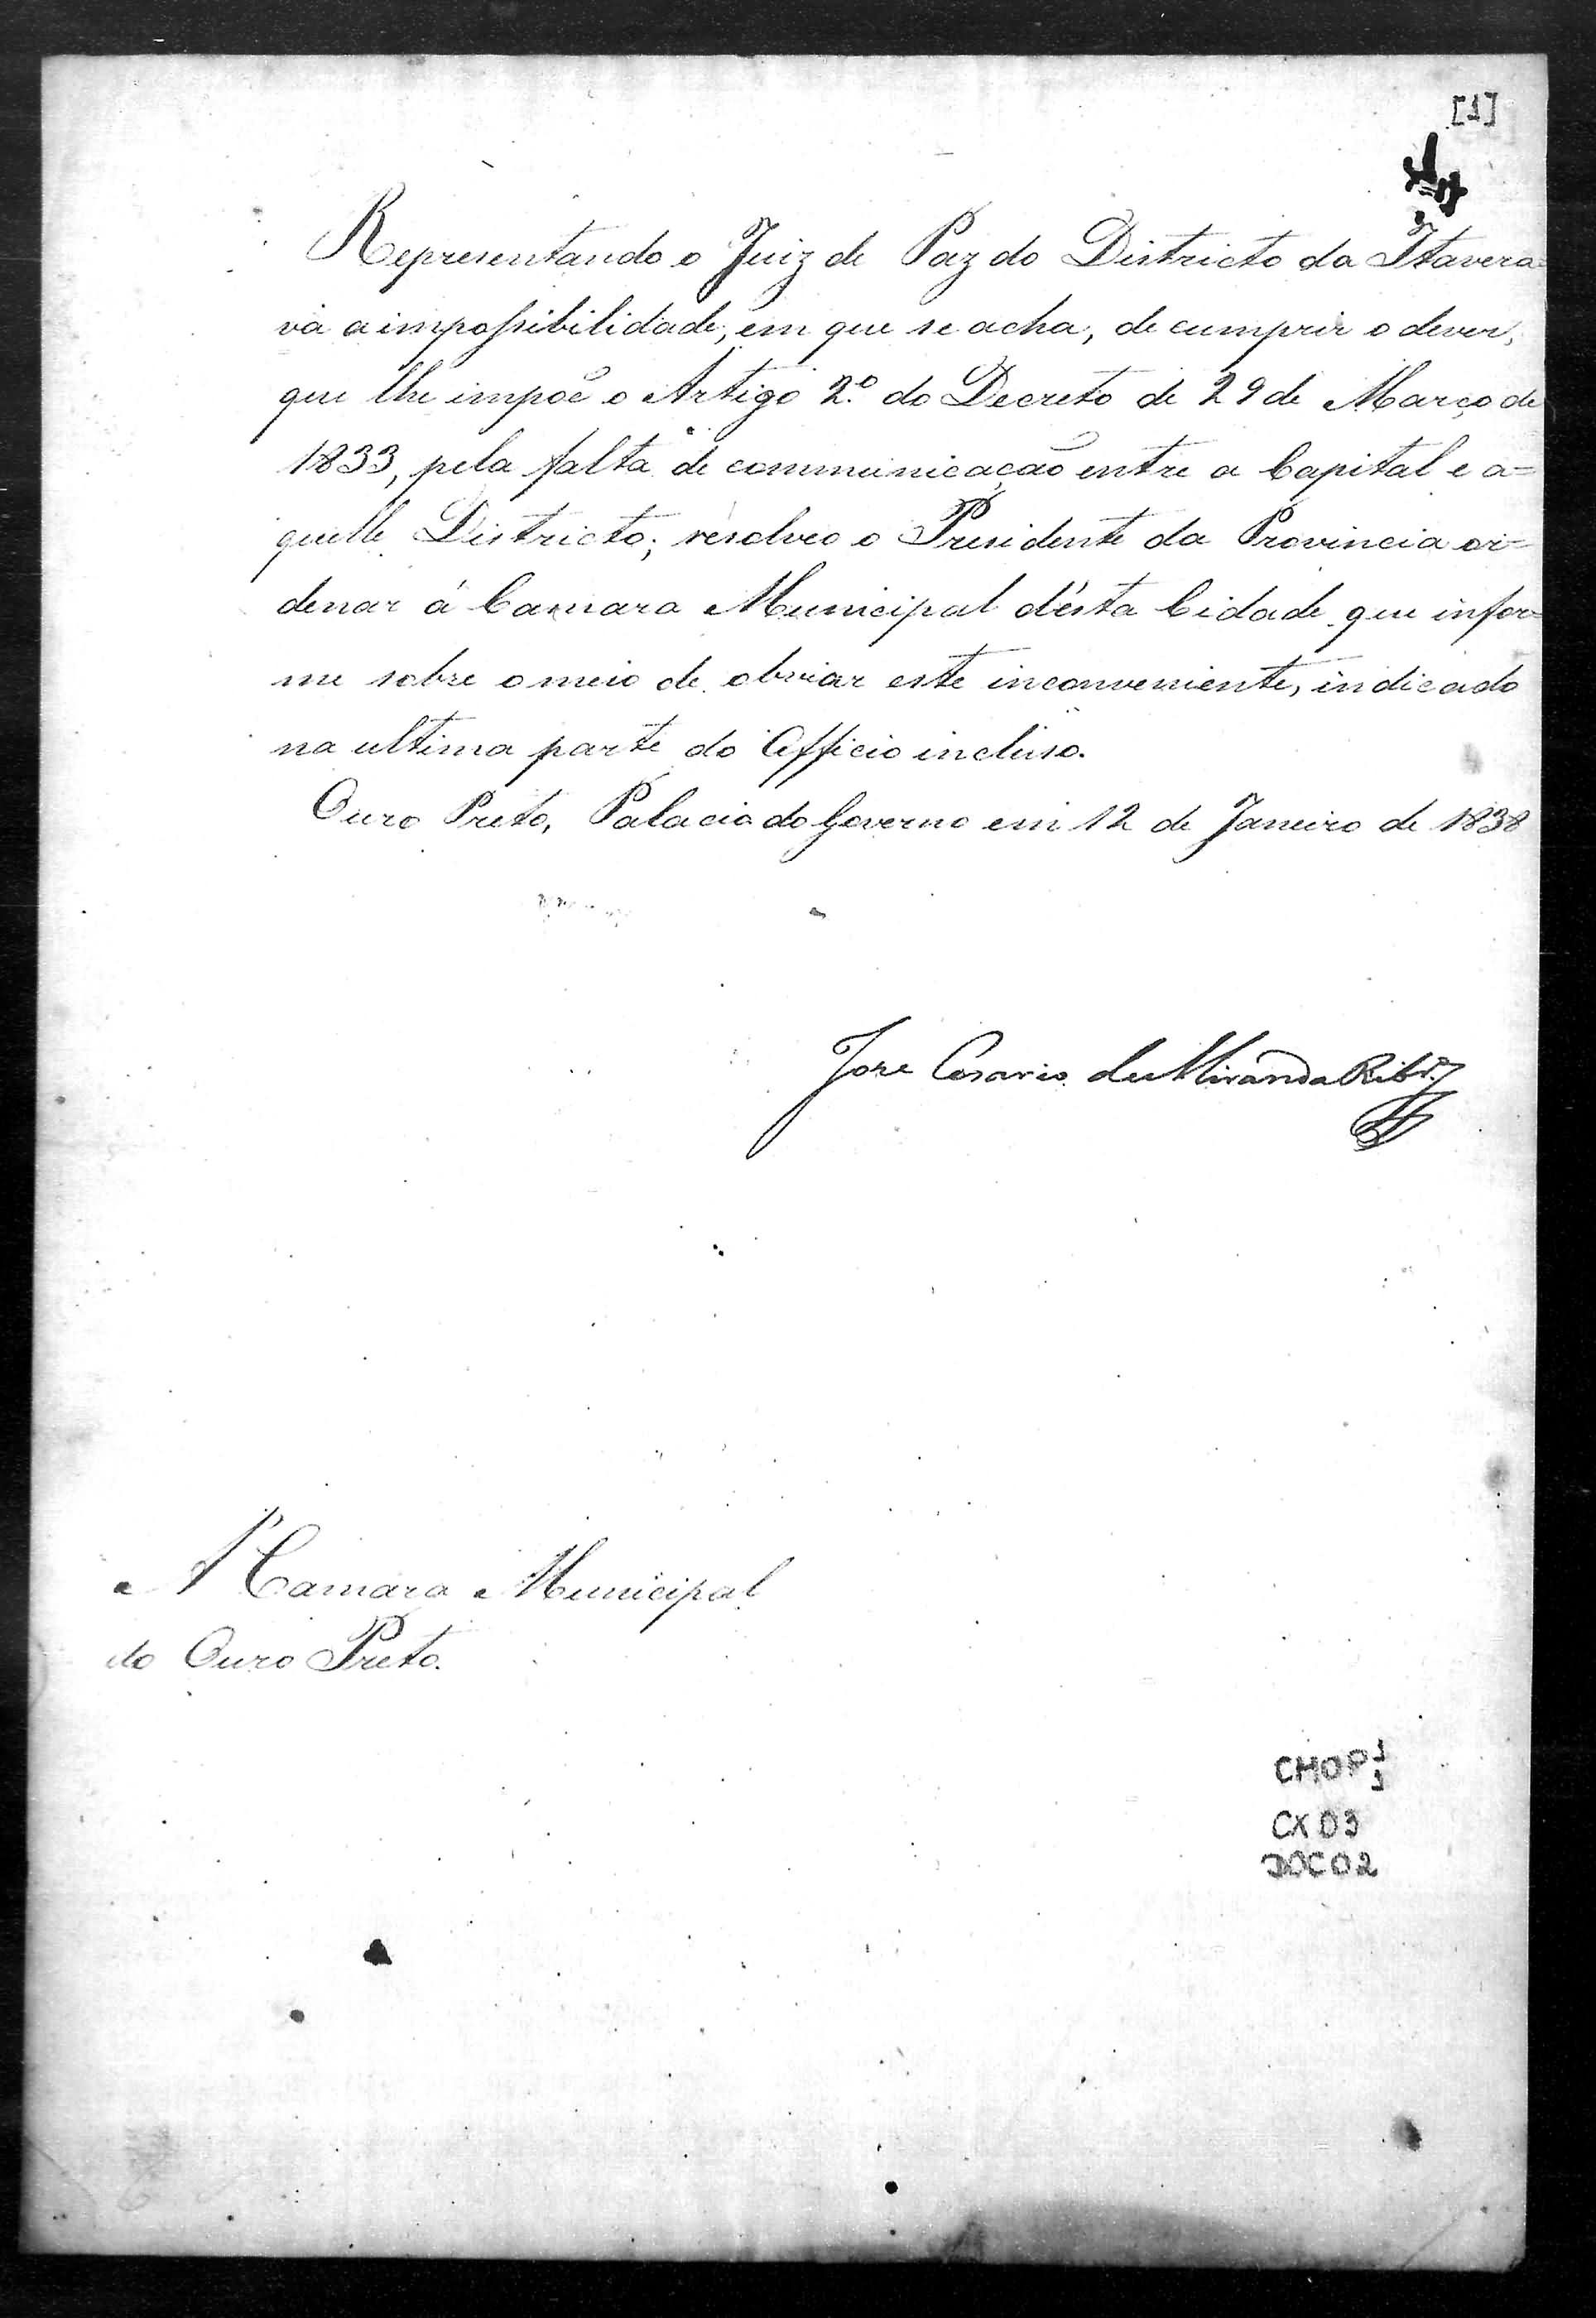 [1]
Representando o Juiz de Paz do Districto da Itavera=
va a impossibilidade, em que se acha, de cumprir o dever,
que lhe impoẽ o Artigo 2.º do Decreto de 29 de Março de
1833, pela falta de communicação entre a Capital e a=
quelle Districto; resolveo o Presidente da Provincia or=
denar á Camara Municipal d'ésta Cidade que infor=
me sobre o meio de obviar este inconveniente, indicado
na ultima parte do Officio incluso.
Ouro Preto, Palacio do Governo em 12 de Janeiro de 1838
Jose Cesario de Miranda Ribr.º
A' Camara Municipal
do Ouro Preto.
CMOP 1
3
CX 03
DOC 02